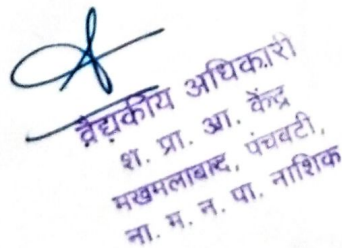 वैद्यकीय अधिकारी
श. प्रा. आ. केंद्र
मखमलाबाद, पंचवटी,
ना. म. न. पा. नाशिक